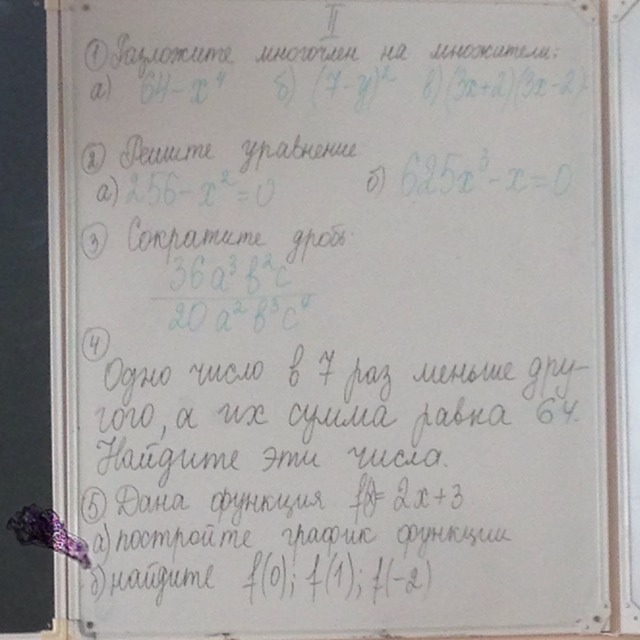 II
① Разложите многочлен на множители:
а) 64-x⁴ б) (7-y)² в) (3x+2)(3x-2)
② Решите уравнение
а) 256-x²=0 б) 625x³-x=0
③ Сократите дробь
36a³b²c
20a²b³c⁴
④
Одно число в 7 раз меньше дру-
гого, а их сумма равна 64.
Найдите эти числа.
⑤ Дана функция f(x)=2x+3
а) постройте график функции
б) найдите f(0); f(1); f(-2)